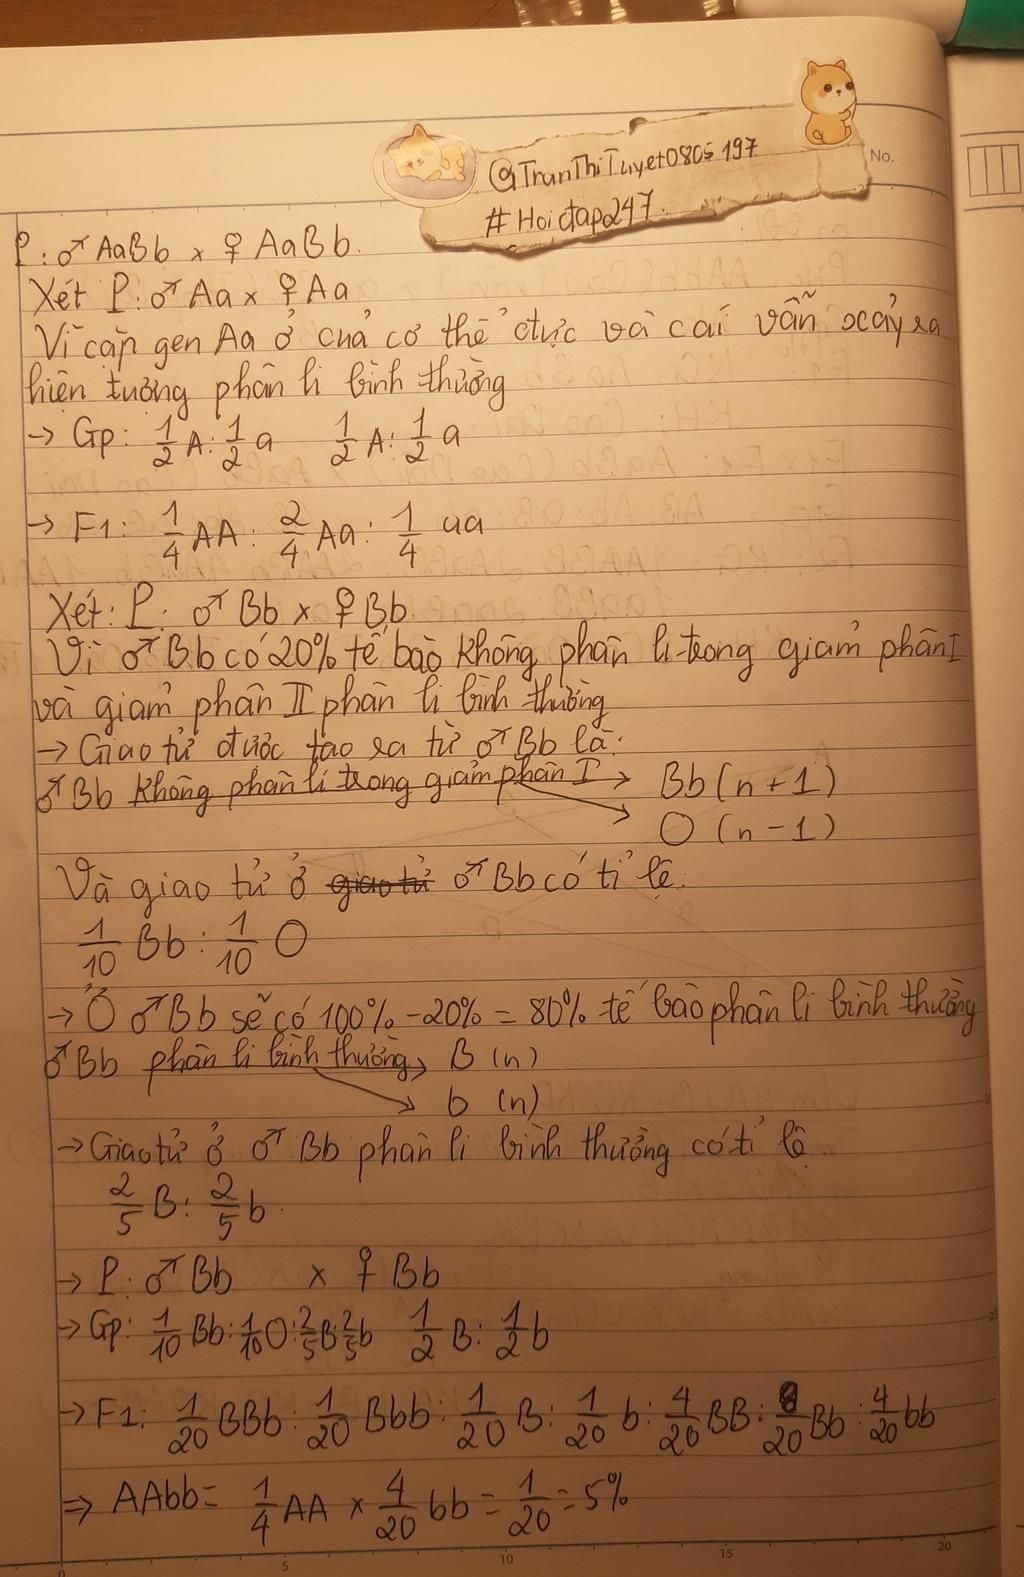 No.
@TranThiTuyet0805197
#Hoidap247.
P: ♂ AaBb x ♀ AaBb.
Xét P: ♂ Aa x ♀ Aa
Vì cặp gen Aa ở cả cơ thể đực và cái vẫn xảy ra
hiện tượng phân li bình thường
→ Gp: 1/2 A: 1/2 a 1/2 A: 1/2 a
→ F1: 1/4 AA: 2/4 Aa: 1/4 aa
Xét: P: ♂ Bb x ♀ Bb.
Vì ♂ Bb có 20% tế bào không phân li trong giảm phân I
và giảm phân II phân li bình thường
→ Giao tử được tạo ra từ ♂ Bb là:
♂ Bb không phân li trong giảm phân I → Bb (n+1)
O (n-1)
Và giao tử ở giao tử ♂ Bb có tỉ lệ.
1/10 Bb: 1/10 O
→ Ở ♂ Bb sẽ có 100% - 20% = 80% tế bào phân li bình thường
♂ Bb phân li bình thường → B (n)
b (n)
→ Giao tử ở ♂ Bb phân li bình thường có tỉ lệ
2/5 B: 2/5 b.
→ P: ♂ Bb x ♀ Bb
→ Gp: 1/10 Bb: 1/10 O: 2/5 B: 2/5 b 1/2 B: 1/2 b
→ F1: 1/20 BBb: 1/20 Bbb: 1/20 B: 1/20 b: 4/20 BB: 8/20 Bb: 4/20 bb
⇒ AAbb = 1/4 AA x 4/20 bb = 1/20 = 5%
0 5 10 15 20